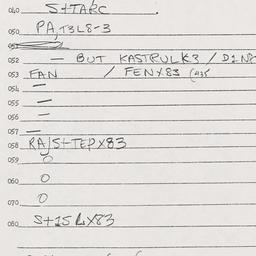 040 S+TARC
050 PA,T3L8-3
052 — BUT KASTRULK3 /
053 FAN / FENX83
054 —
055 —
056 —
057 —
058 RAJS+TEPX83
059 O
060 O
070 O
080 S+1SLX83